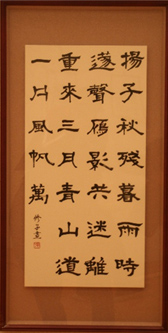 揚子秋殘暮雨時
篴聲雁影共迷離
重來三月青山道
一片風帆萬